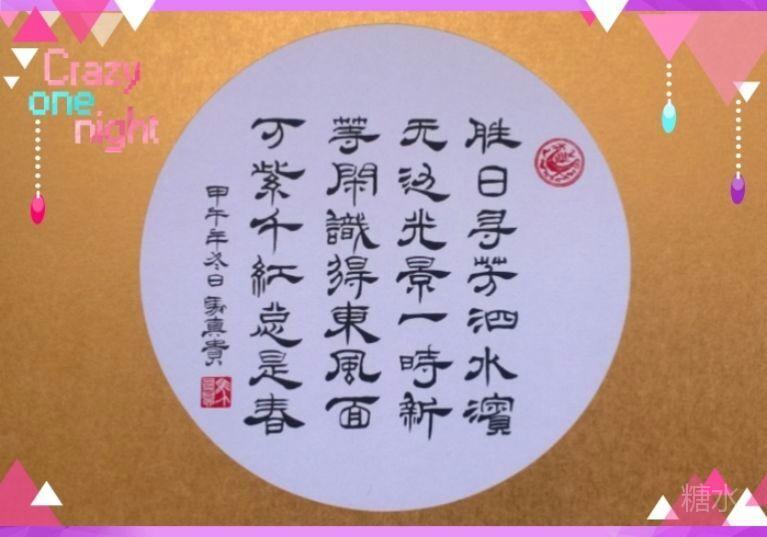 Crazy
one
night
胜日寻芳泗水濱
无边光景一時新
等閑識得東風面
万紫千紅总是春
甲午年冬日 真貴
糖水